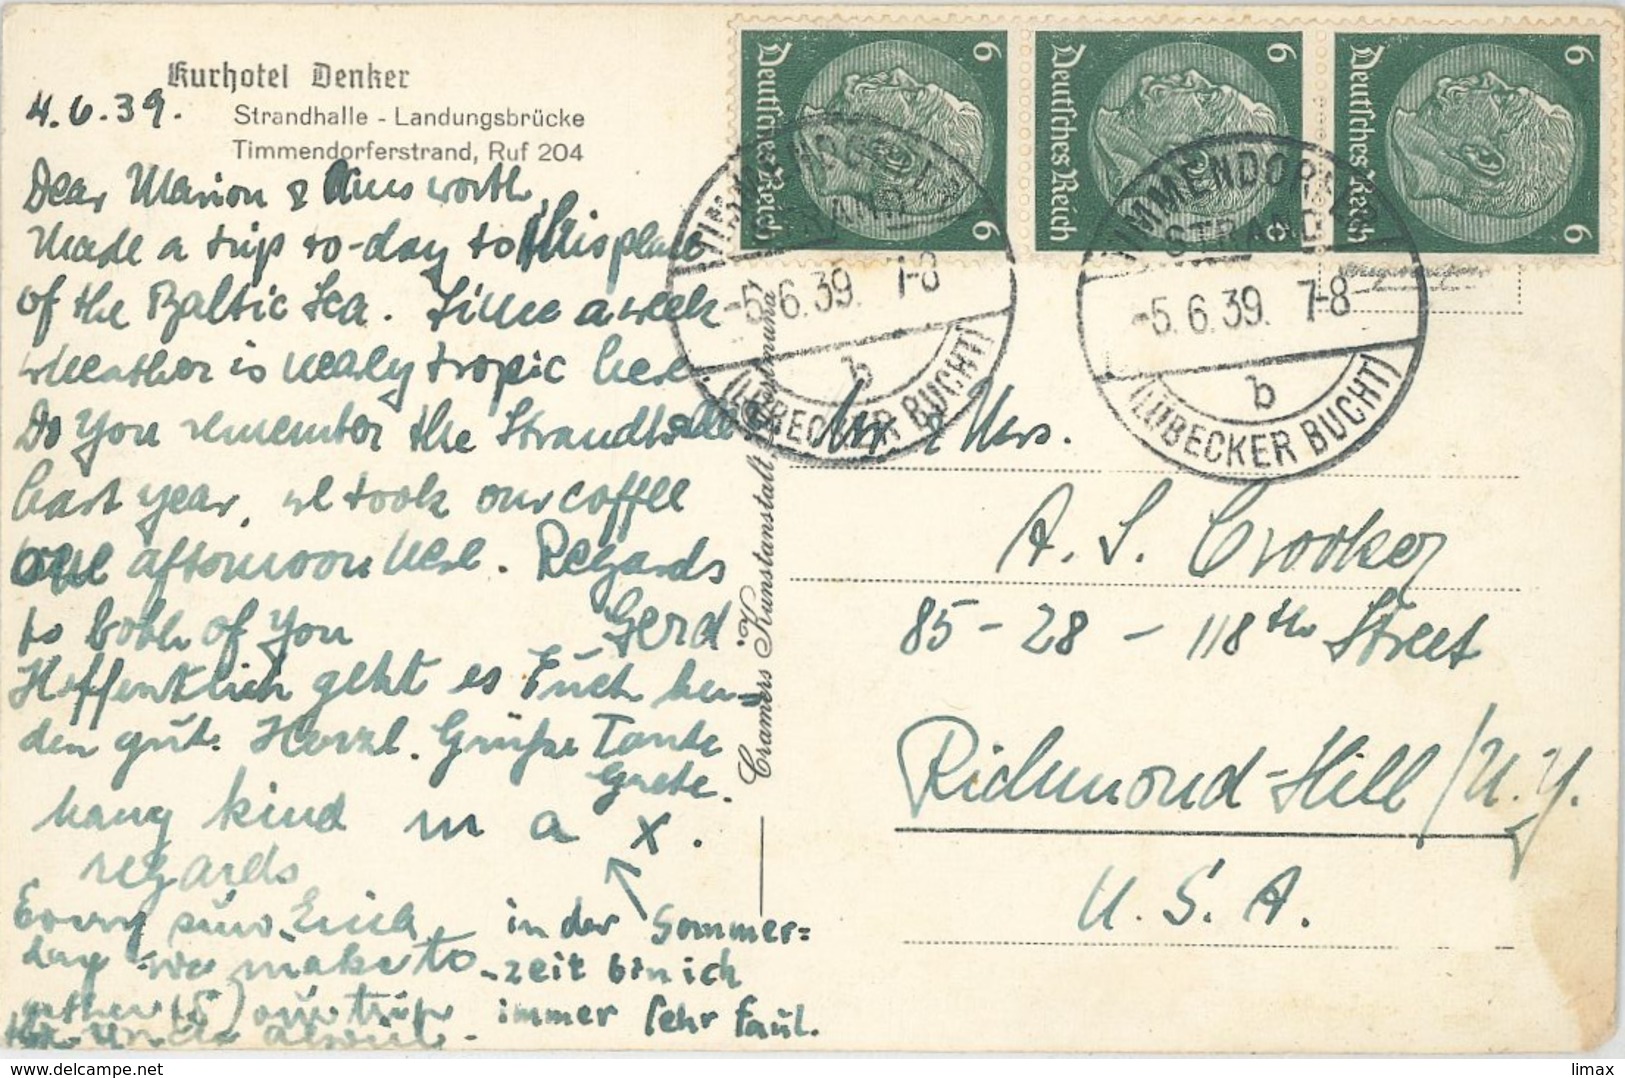 Kurhotel Denker
4.6.39.
Strandhalle - Landungsbrücke
Timmendorferstrand, Ruf 204
Dear Marion &
Made a trip to-day to this place
of the Baltic Sea. Since a week
wheather is nearly tropic here.
Do you remember the Strandhalle
last year, we took our coffee
one afternoon here. Regards
to both of you Gerd
Hoffentlich geht es Euch bei=
den gut. Herzl. Grüße Tante
Grete.
many kind m a x.
regards
Erich in der Sommer=
day we make to zeit bin ich
trip immer sehr faul.
Cramers Kunstanstalt
6 Deutsches Reich 6
6 Deutsches Reich 6
6 Deutsches Reich 6
TIMMENDORFER
STRAND
-5.6.39. 7-8
b
(LÜBECKER BUCHT)
TIMMENDORFER
STRAND
-5.6.39. 7-8
b
(LÜBECKER BUCHT)
Mr. & Mrs.
A. S. Crooker
85-28-118th Street
Richmond-Hill / N.Y.
U.S.A.
limax